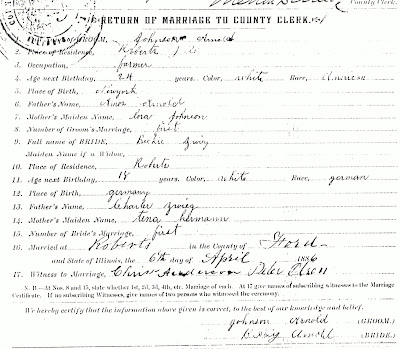 County Clerk.
RETURN OF MARRIAGE TO COUNTY CLERK.
1. Full Name of GROOM, Johnson Arnold
2. Place of Residence, Roberts
3. Occupation, farmer
4. Age next Birthday, 24 years. Color, white Race, American
5. Place of Birth, Newyork
6. Father's Name, Amos Arnold
7. Mother's Maiden Name, Johnson
8. Number of Groom's Marriage, first
9. Full name of BRIDE,
Maiden Name if a Widow,
10. Place of Residence, Roberts
11. Age next Birthday, 18 years. Color, white Race, german
12. Place of Birth, germany
13. Father's Name, Charles
14. Mother's Maiden Name, tena hermann
15. Number of Bride's Marriage, first
16. Married at Roberts in the County of Ford
and State of Illinois, the 6th day of April 1886
17. Witness to Marriage, Chris Anderson Peter Olson
N. B.—At Nos. 8 and 15, state whether 1st, 2d, 3d, 4th, etc. Marriage of each. At 17 give names of subscribing witnesses to the Marriage
Certificate. If no subscribing Witnesses, give names of two persons who witnessed the ceremony.
We hereby certify that the information above given is correct, to the best of our knowledge and belief.
Johnson Arnold (GROOM.)
Arnold (BRIDE.)